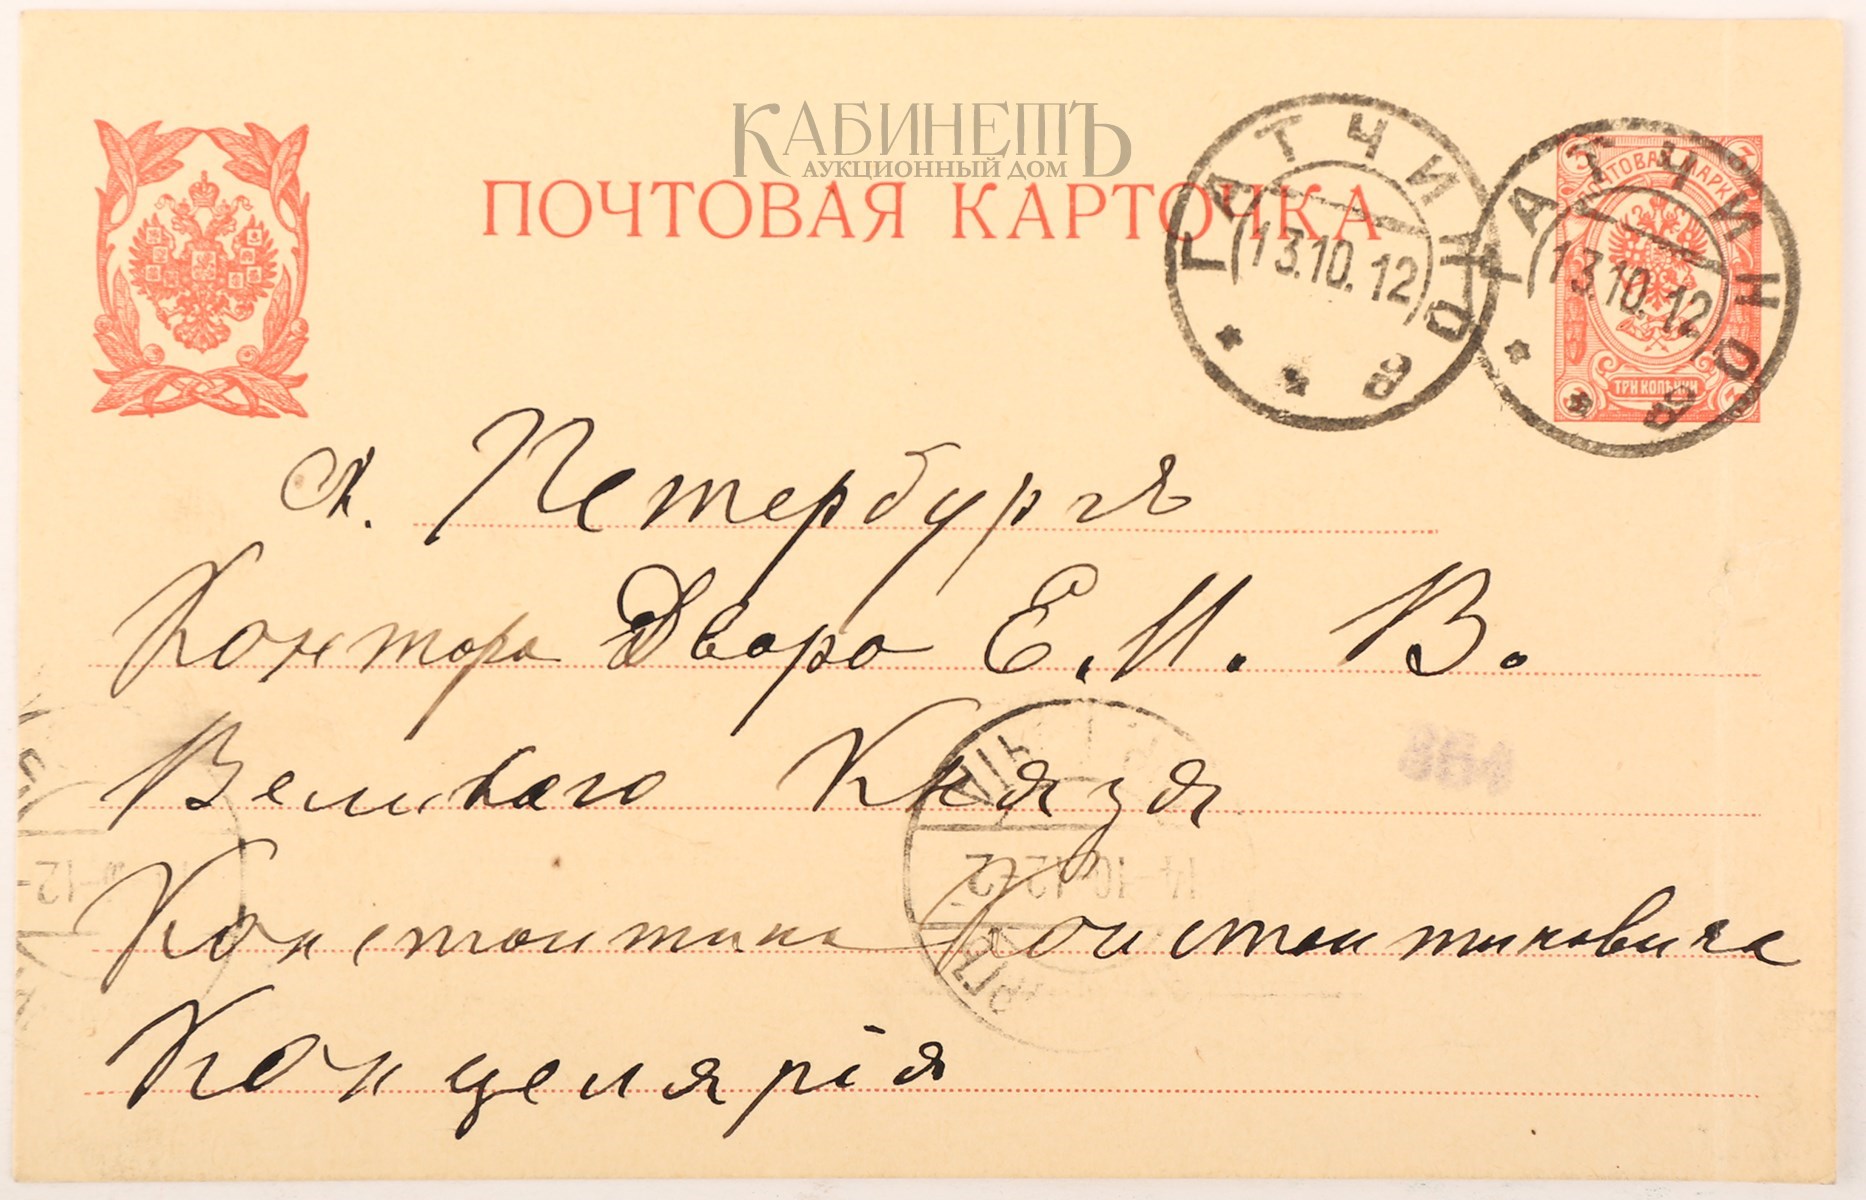 КАБИНЕТЪ
АУКЦИОННЫЙ ДОМ
ПОЧТОВАЯ КАРТОЧКА
ГАТЧИНО
13.10.12
в
ГАТЧИНО
13.10.12
в
ПОЧТОВАЯ МАРКА
3 3
ТРИ КОПѢЙКИ
3 3
С. Петербургъ
Контора Двора Е. И. В.
Великаго Князя
Константина Константиновича
Канцелярія
14-10-12